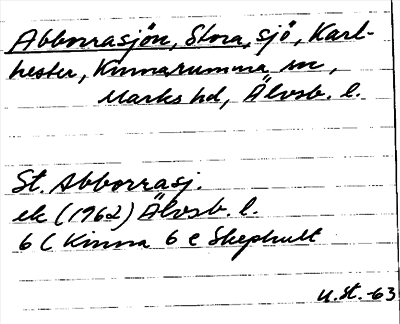 Abborrasjön, Stora, sjö, Karl-
hester, Kinnarumma sn,
Marks hd, Älvsb. l.
St. Abborrasj.
ek (1962) Älvsb. l.
6 C Kinna 6 e Skephult
U.St. -63